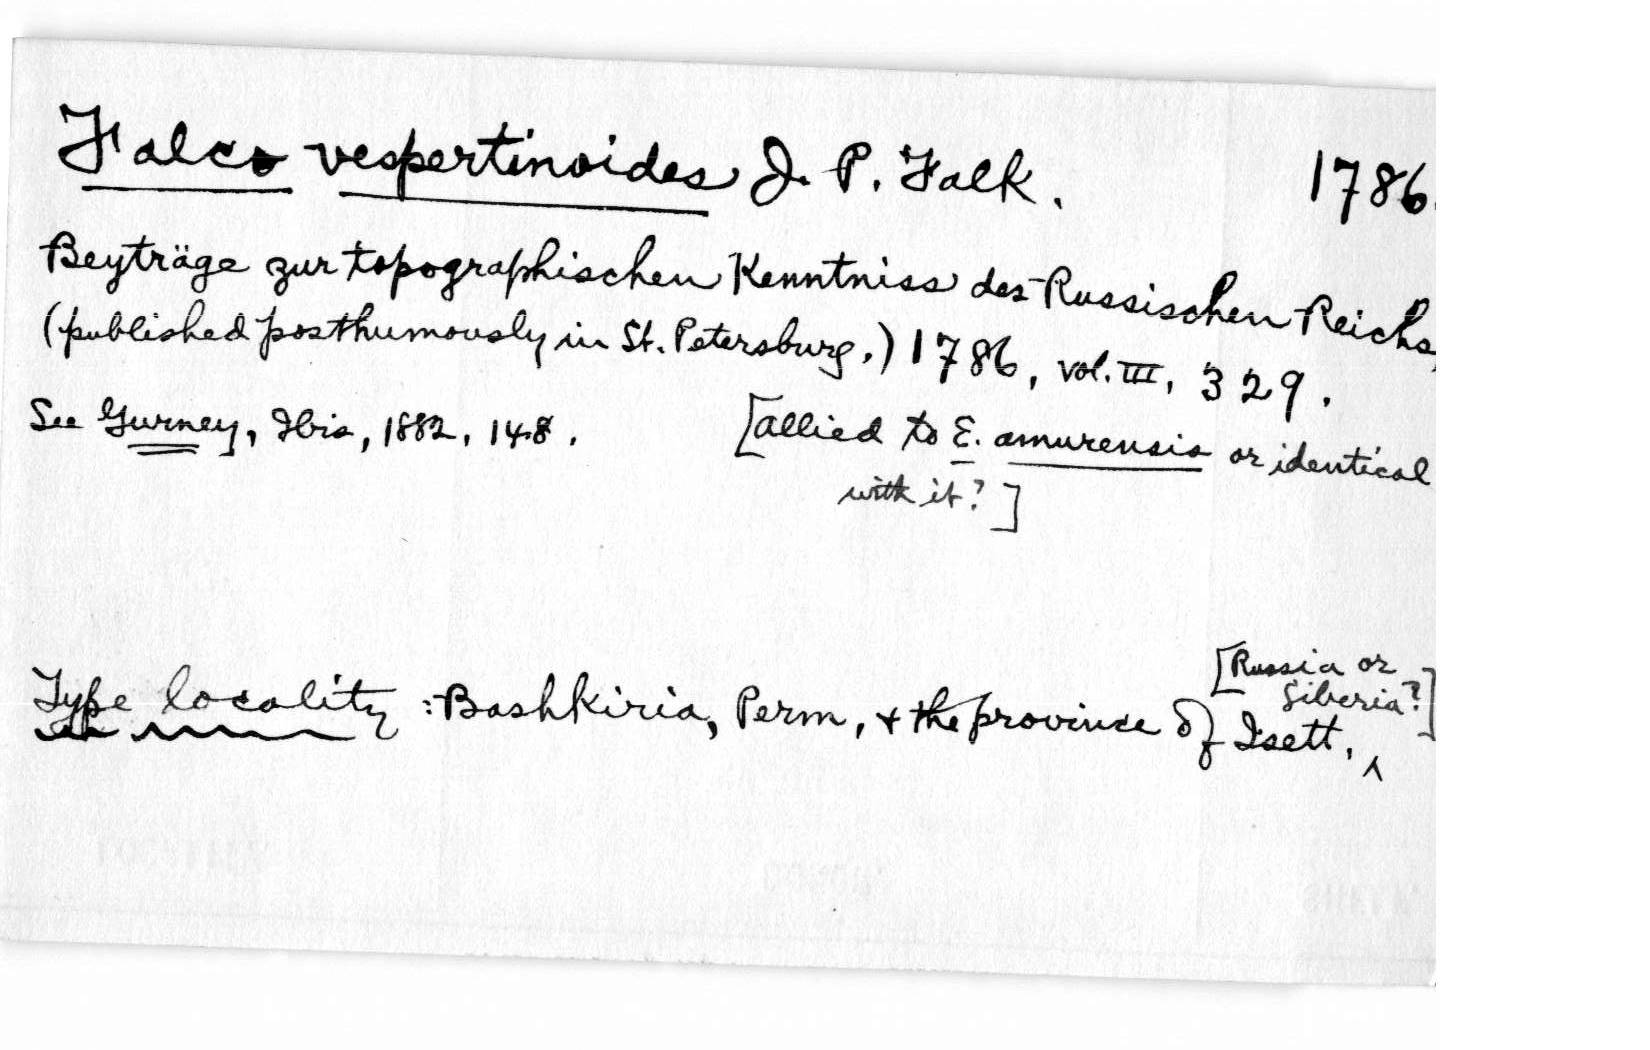 Falco vespertinoides J. P. Falk. 1786.
Beyträge zur topographischen Kenntniss des Russischen Reichs,
(published posthumously in St. Petersburg.) 1786, vol. III, 329.
See Gurney, Ibis, 1882, 148.
[allied to E. amurensis or identical
with it?]
[Russia or
Siberia?]
Type locality: Bashkiria, Perm, & the province of Isett, ^